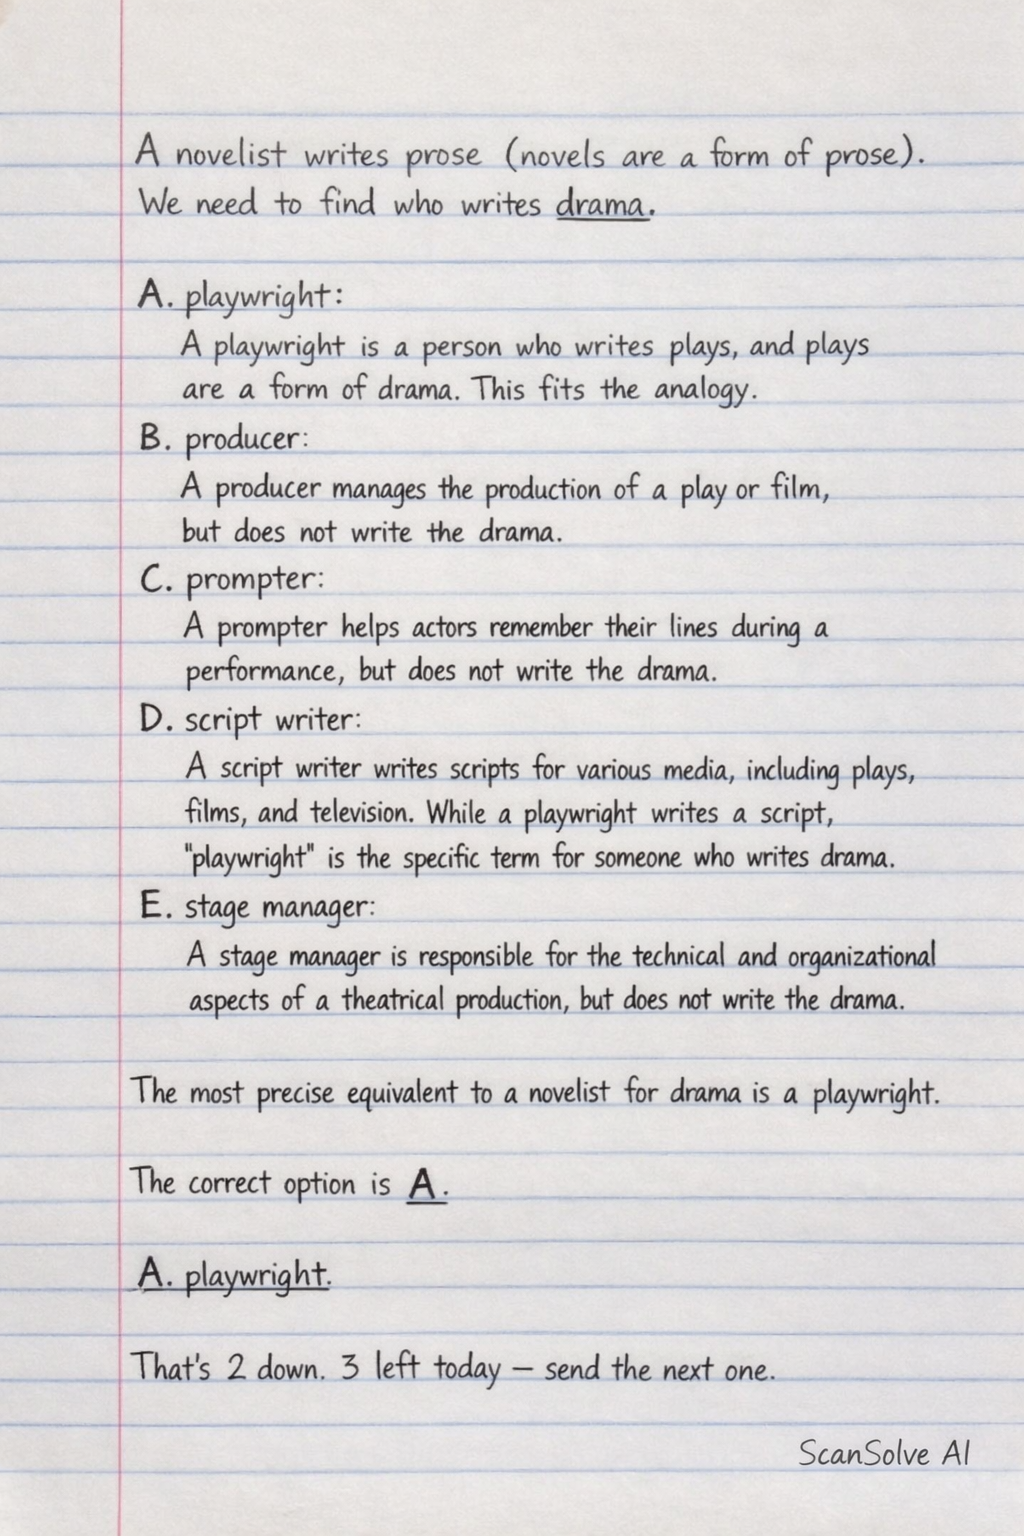 A novelist writes prose (novels are a form of prose).
We need to find who writes drama.
A. playwright:
A playwright is a person who writes plays, and plays
are a form of drama. This fits the analogy.
B. producer:
A producer manages the production of a play or film,
but does not write the drama.
C. prompter:
A prompter helps actors remember their lines during a
performance, but does not write the drama.
D. script writer:
A script writer writes scripts for various media, including plays,
films, and television. While a playwright writes a script,
"playwright" is the specific term for someone who writes drama.
E. stage manager:
A stage manager is responsible for the technical and organizational
aspects of a theatrical production, but does not write the drama.
The most precise equivalent to a novelist for drama is a playwright.
The correct option is A.
A. playwright.
That's 2 down. 3 left today — send the next one.
ScanSolve AI